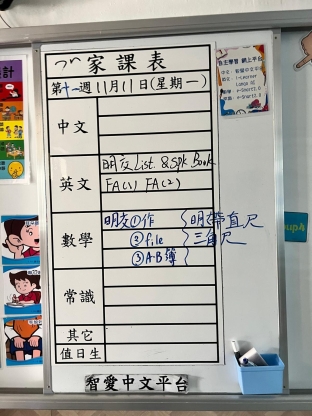 家課表
第十一週11月11日(星期一)
中文
英文
明交 List. & Spk Book
FA(1) FA(2)
數學
明交①作
②file
③A-B簿
明帶直尺
三角尺
常識
其它
值日生
智愛中文平台
自主學習 網上平台